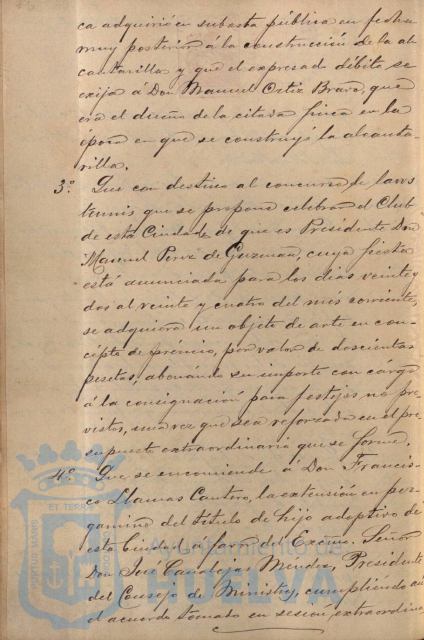 ca adquirió en subasta pública en fecha
muy posterior á la construcción de la al
cantarilla y que el expresado débito se
exija á Don Manuel Ortiz Bravo, que
era el dueño de la citada finca en la
época en que se construyó la alcanta-
rilla.
3º. Que con destino al concurso de laws
tennis que se propone celebrar el Club
de esta Ciudad de que es Presidente Don
Manuel Perez de Guzman, cuya fiesta
está anunciada para los dias veinte y
dos al veinte y cuatro del mes corriente,
se adquiera un objeto de arte en con-
cepto de prémio, por valor de doscientas
pesetas, abonándo su importe con cárgo
á la consignación para festejos no pre-
vistos, una vez que sea reforzada en el pre-
supuesto extraordinario que se forme.
4º. Que se encomiende á Don Francis-
co Llamas Cantero, la extensión en per-
gamino del título de hijo adoptivo de
esta Ciudad á favor del Excmo. Señor
Don José Canalejas Mendez, Presidente
del Consejo de Ministros, cumpliéndo así
el acuerdo tomado en sesión extraordina
PORTUS MARIS ET TERRAE CUSTODIA
Ayuntamiento de
HUELVA